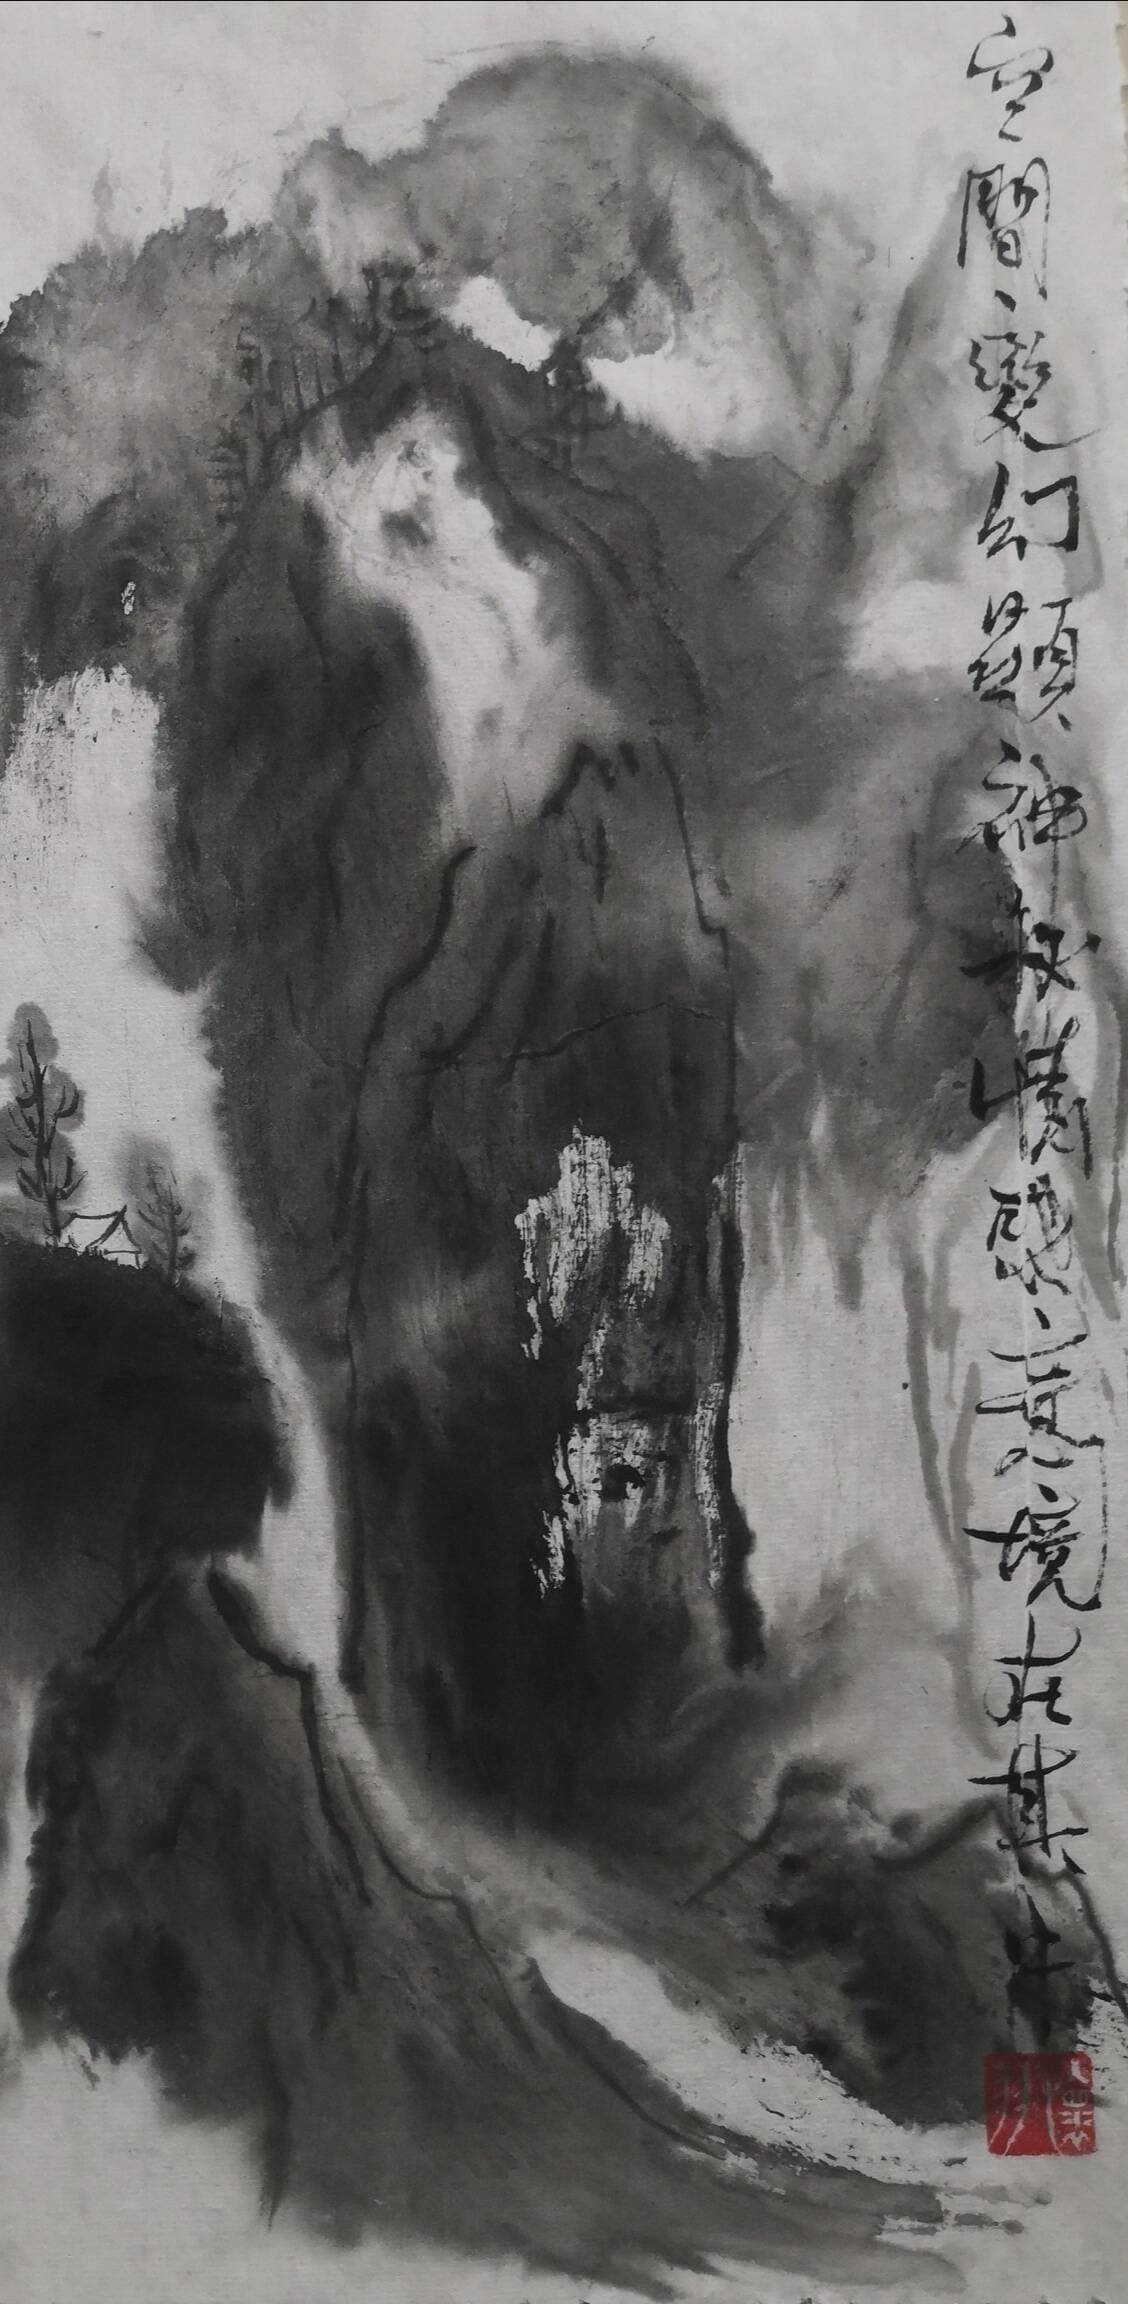 空間、變幻顯神秘感、意、境在其中